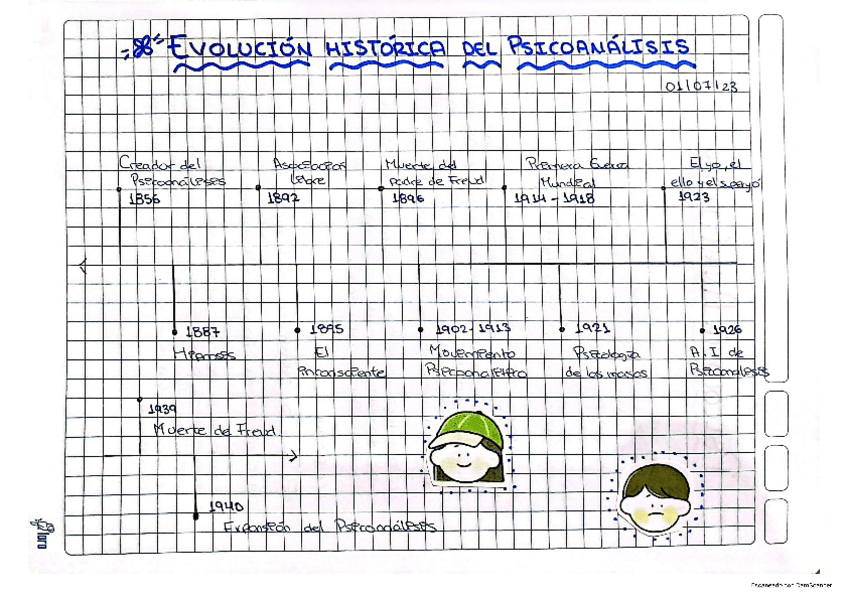 EVOLUCIÓN HISTÓRICA DEL PSICOANÁLISIS
01/07/23
Creador del
Psicoanálisis
1856
Asociación
libre
1892
Muerte del
padre de Freud
1896
Primera Guerra
Mundial
1914 - 1918
El yo, el
ello y el superyó
1923
1887
Hipnosis
1895
El
inconsciente
1902 - 1913
Movimiento
Psicoanalítico
1921
Psicología
de las masas
1926
A. I de
Psicoanálisis
1939
Muerte de Freud.
1940
Expansión del Psicoanálisis
Noro
Escaneado con CamScanner